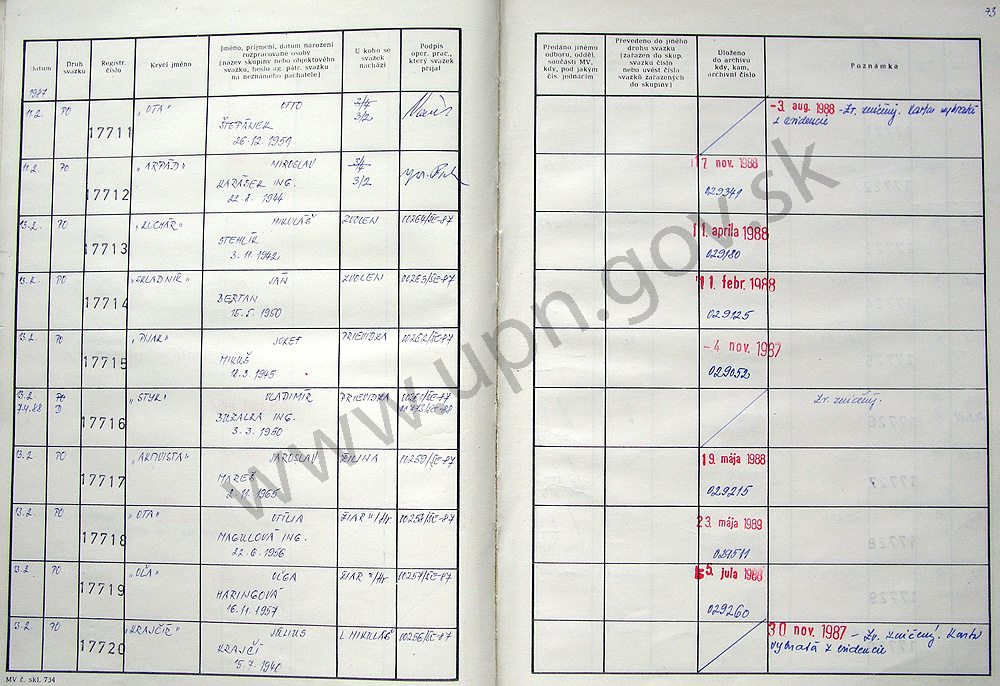 73
Datum
Druh
svazku
Registr.
číslo
Krycí jméno
Jméno, příjmení, datum narození
rozpracované osoby
(název skupiny nebo objektového
svazku, heslo ag. pátr. svazku
na neznámého pachatele)
U koho se
svazek
nachází
Podpis
oper. prac.,
který svazek
přijal
Předáno jinému
odboru, odděl.
součásti MV,
kdy, pod jakým
čís. jednacím
Převedeno do jiného
druhu svazku
(zařazen do skup.
svazku číslo
nebo uvést číslo
svazků zařazených
do skupiny)
Uloženo
do archivu
kdy, kam,
archivní číslo
Poznámka
1987
11.2. PO 17711 „OTA" OTTO 3/4
ŠTEPÁNEK 3/2
26.12.1951
-3. aug. 1988 - Zv. zničený. Karta vybratá
z evidencie
11.2. PO 17712 „ARPÁD" MIROSLAV 3/4
KARÁSEK ING. 3/2
22.8.1944
17. nov. 1988
029341
13.2. PO 17713 „KUCHÁR" MIKULÁŠ ZVOLEN 00264/ŠC-87
STEHLÍK
3.11.1942
11. apríla 1988
029180
13.2. PO 17714 „SKLADNÍK" JÁN ZVOLEN 00263/ŠC-87
BERTAN
15.5.1950
11. febr. 1988
029125
13.2. PO 17715 JOZEF PRIEVIDZA 00262/ŠC-87
MIKUŠ
12.3.1945
-4. nov. 1987
029052
13.2. PO 17716 VLADIMÍR PRIEVIDZA 00261/ŠC-87
7.4.88 D ING.
3.3.1950
Zv. zničený.
13.2. PO 17717 „AKTIVISTA" JAROSLAV ŽILINA 00259/ŠC-87
MAREŠ
2.11.1965
19. mája 1988
029215
13.2. PO 17718 „OTA" OTÍLIA ŽIAR n/Hr 00258/ŠC-87
MAGULOVÁ ING.
22.6.1956
23. mája 1989
13.2. PO 17719 „OĽA" OĽGA ŽIAR n/Hr 00257/ŠC-87
HARINGOVÁ
16.11.1957
5. júla 1988
029260
13.2. PO 17720 „KRAJČÍR" JÚLIUS L. MIKULÁŠ 00256/ŠC-87
KRAJČÍ
15.7.1940
30 nov. 1987 - Zv. zničený. Karta
vybratá z evidencie
MV č. skl. 734
www.upn.gov.sk